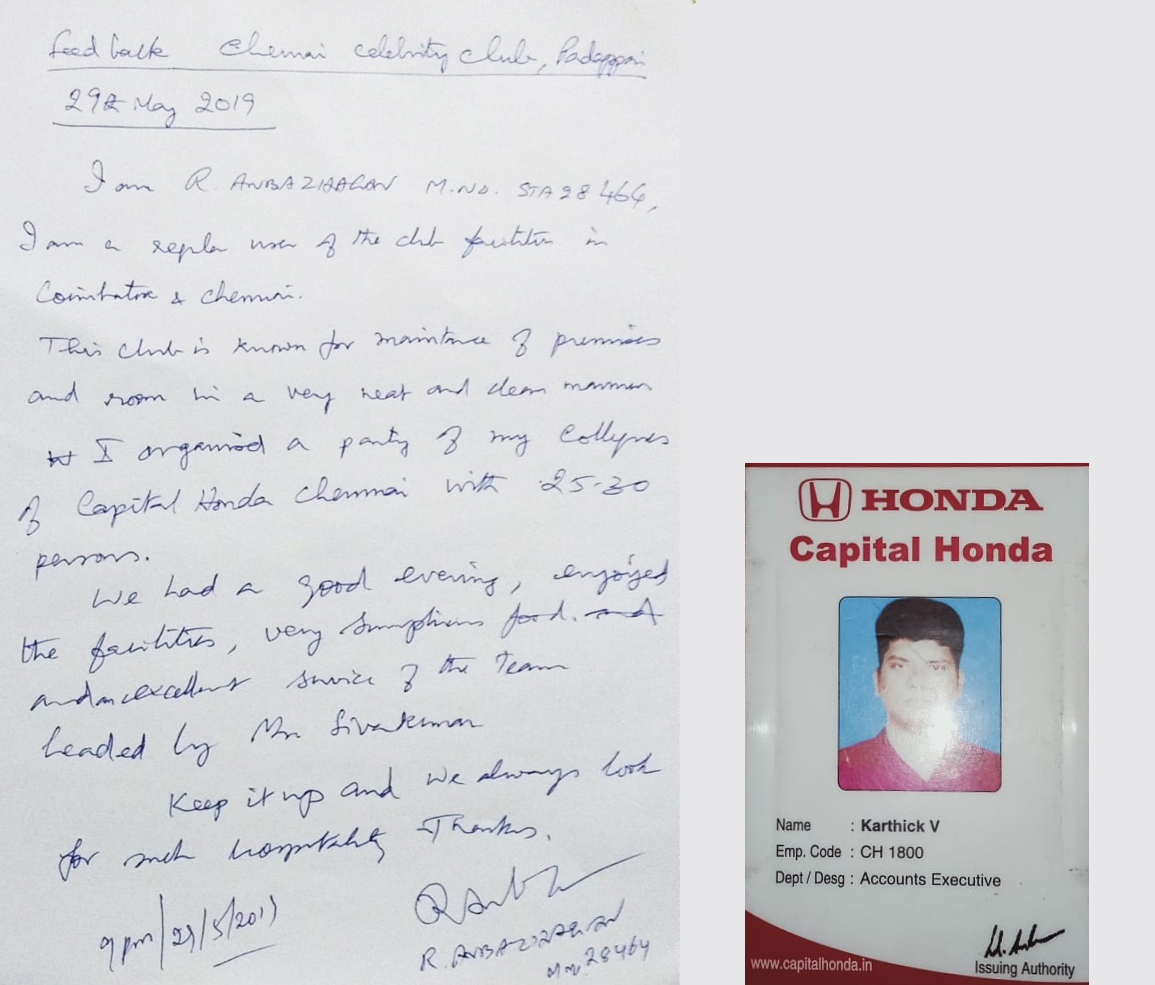 Feed back Chennai celebrity club, Padappai
29th May 2019
I am R. ANBAZHAGAN M.NO. STA28464,
I am a regular user of the club facilities in
Coimbatore & Chennai.
This club is known for maintance of premises
and room in a very neat and clean manner
I organised a party of my Colleques
of Capital Honda Chennai with 25-30
persons.
We had a good evening, enjoyed
the facilities, very sumptious food.
and an excellent service of the Team
headed by Mr Sivakumar
Keep it up and we always look
for such hospitality Thanks.
9 pm/29/5/2019
R. ANBAZHAGAN
28464
HONDA
Capital Honda
Name : Karthick V
Emp. Code : CH 1800
Dept / Desg : Accounts Executive
www.capitalhonda.in
Issuing Authority